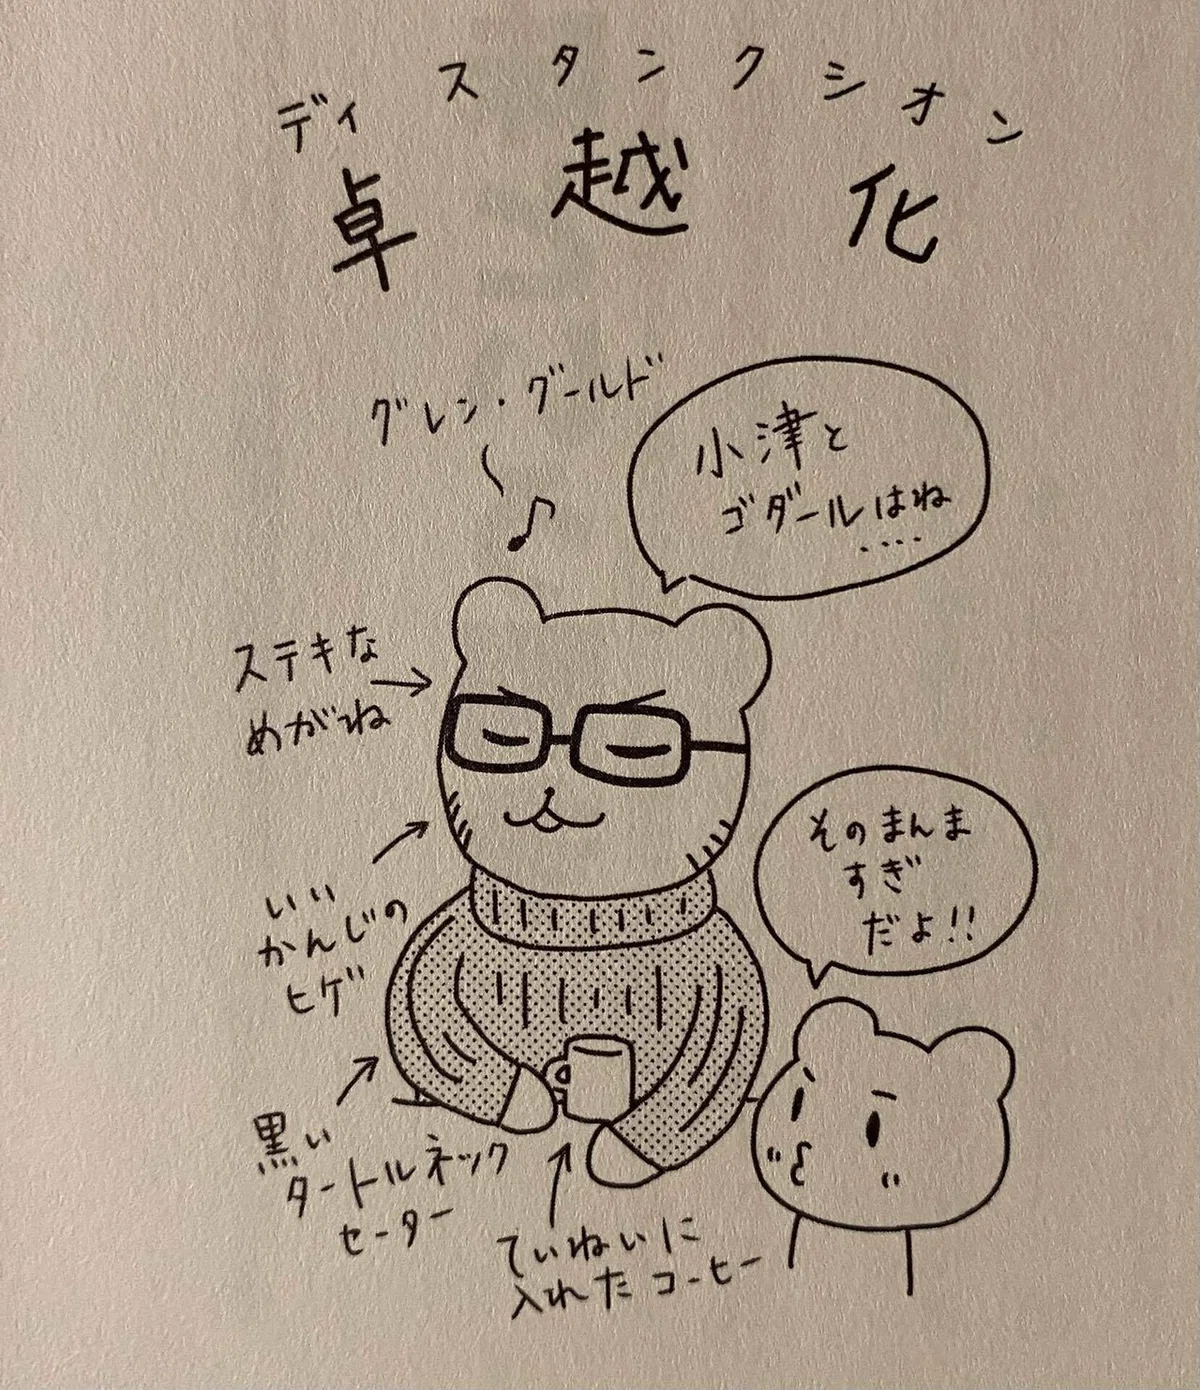 ディスタンクシオン
卓越化
グレン・グールド
小津と
ゴダールはね
‥‥
ステキな
めがね
いい
かんじの
ヒゲ
そのまんま
すぎ
だよ!!
黒い
タートルネック
セーター
ていねいに
入れたコーヒー